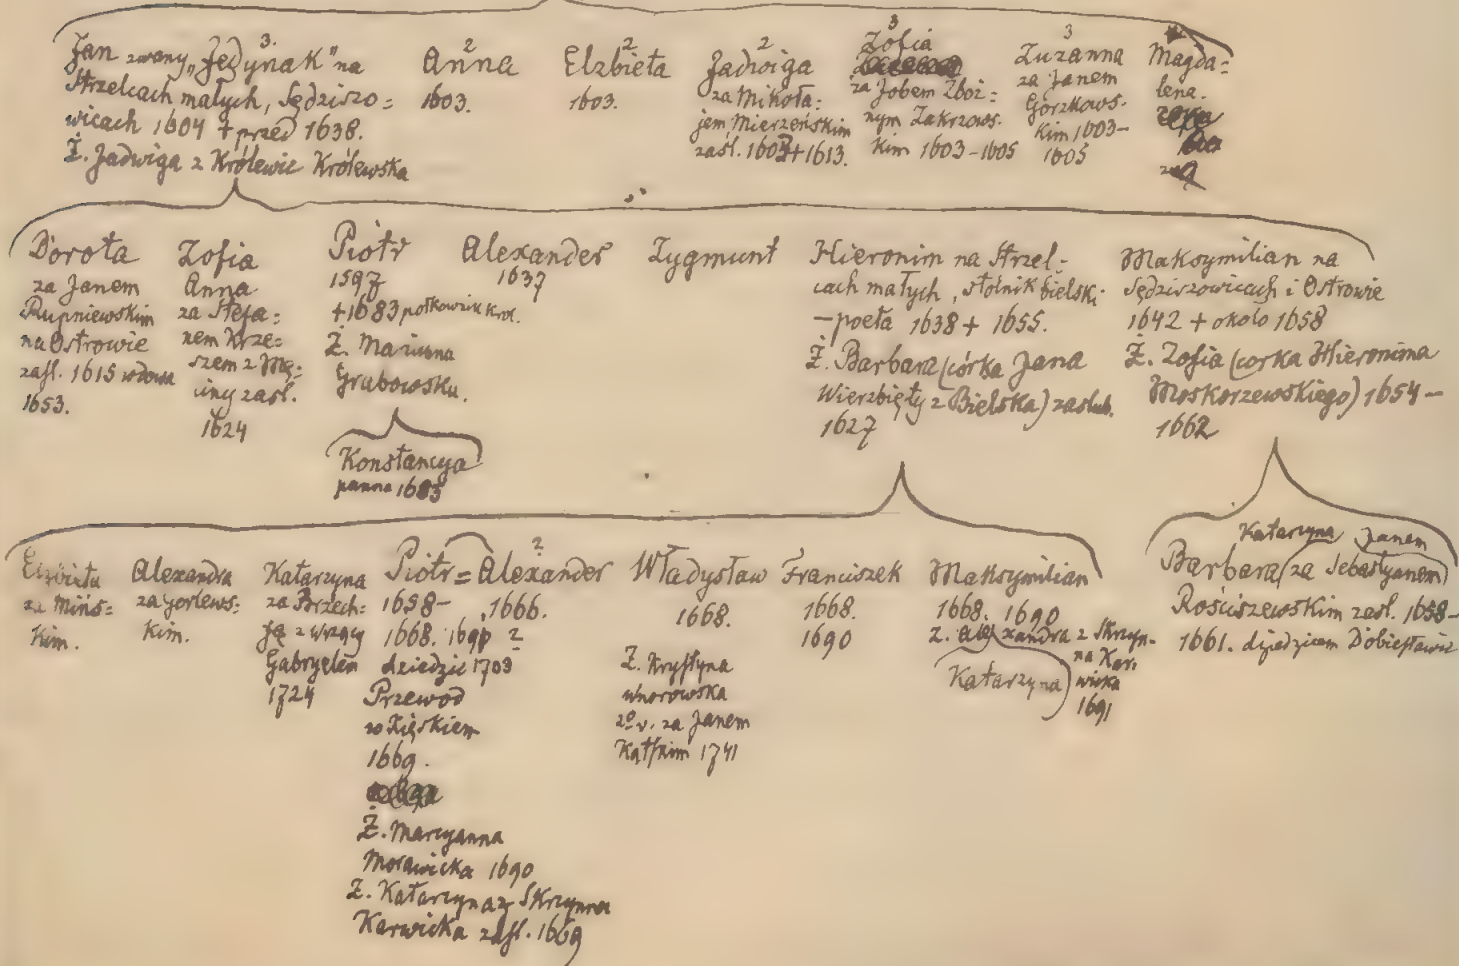 Jan zwany „Jedynak" na
Strzelcach małych, Sędziszo=
wicach 1604 + przed 1638.
Ż. Jadwiga z Królewic Królewska
3.
2
Anna
1603.
2
Elżbieta
1603.
2
Jadwiga
za Mikoła=
jem Mierzeńskim
zaśl. 1603 + 1613.
3
Zofia
za Jobem Zboż=
nym Zakrzows.
kim 1603-1605
3
Zuzanna
za Janem
Gorzkows.
kim 1603-
1605
Magda=
lena.
Dorota
za Janem
Rupniewskim
na Ostrowie
zaśl. 1615 wdowa
1653.
Zofia
Anna
za Stefa=
nem Krze=
szem z Mę=
ciny zaśl.
1624
Piotr
1597
+1683 półkownik Krol.
Ż. Maryanna
Grabowska.
Konstancya
panna 1683
Alexander
1637
Zygmunt
Hieronim na Strzel-
cach małych, stolnik bielski
- poeta 1638 + 1655.
Ż. Barbara (córka Jana
Wierzbięty z Bielska) zaślub.
1627
Maksymilian na
Sędziszowicach i Ostrowie
1642 + około 1658
Ż. Zofia (corka Hieronima
Moskorzewskiego) 1654-
1662
Elżbieta
za Mińs=
kim.
Alexandra
za Gorlews=
kim.
Katarzyna
za Brzech=
fą z Wrzący
Gabryelem
1724
Piotr =
1658-
1668. 1690 ?
dziedzic 1703
Przewod
w Xięskiem
1669.
Ż. Maryanna
Morawicka 1690
Ż. Katarzyna z Skrzynna
Karwicka zaśl. 1669
?
Alexander
1666.
Władysław
1668.
Ż. Krystyna
Wnorowska
2º v. za Janem
Kątskim 1741
Franciszek
1668.
1690
Maksymilian
1668. 1690
Ż. Alexandra z Skrzyn-
na Kar.
wicka
1691
Katarzyna
Katarzyna Janem
Barbara (za Sebastyanem)
Rościszewskim zaśl. 1658-
1661. dziedzicem Dobiesławic